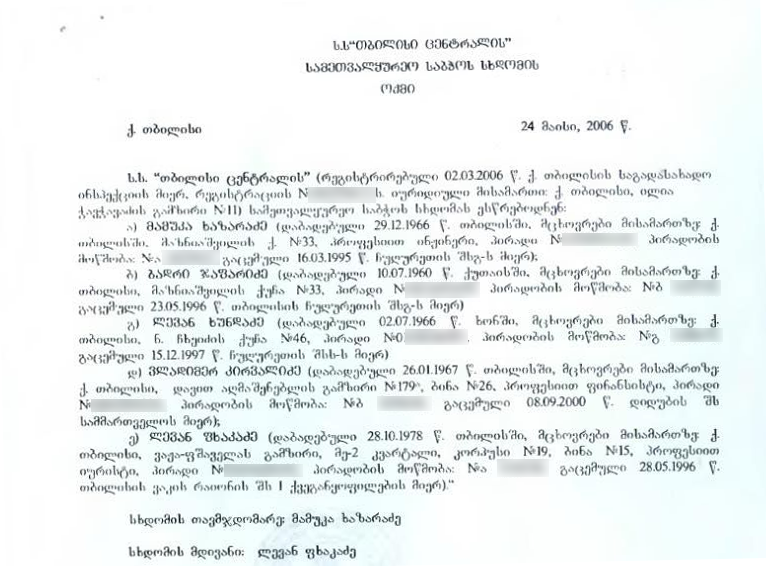 ს.ს“თბილისი ცენტრალის”
სამეთვალყურეო საბჭოს სხდომის
ოქმი
ქ. თბილისი 24 მაისი, 2006 წ.
ს.ს. “თბილისი ცენტრალის” (რეგისტრირებული 02.03.2006 წ. ქ. თბილისის საგადასახადო
ინსპექციის მიერ, რეგისტრაციის N ს. იურიდიული მისამართი: ქ. თბილისი, ილია
ჭავჭავაძის გამზირი №11) სამეთვალყურეო საბჭოს სხდომას ესწრებოდნენ:
ა) მამუკა ხაზარაძე (დაბადებული 29.12.1966 წ. თბილისში, მცხოვრები მისამართზე: ქ.
თბილისში, მაზნიაშვილის ქ. №33, პროფესიით ინჟინერი, პირადი № პირადობის
მოწმობა: №ა გაცემული 16.03.1995 წ. ჩუღურეთის შსგ-ს მიერ);
ბ) ბადრი ჯაფარიძე (დაბადებული 10.07.1960 წ. ქუთაისში, მცხოვრები მისამართზე: ქ.
თბილისი, მაზნიაშვილის ქუჩა №33, პირადი N პირადობის მოწმობა: №ბ
გაცემული 23.05.1996 წ. თბილისის ჩუღურეთის შსგ-ს მიერ)
გ) ლევან ხუნდაძე (დაბადებული 02.07.1966 წ. ხონში, მცხოვრები მისამართზე: ქ.
თბილისი, ნ. ჩხეიძის ქუჩა №46, პირადი №0 . პირადობის მოწმობა: №გ
გაცემული 15.12.1997 წ. ჩუღურეთის შსს-ს მიერ)
დ) ვლადიმერ კირვალიძე (დაბადებული 26.01.1967 წ. თბილისში, მცხოვრები მისამართზე:
ქ. თბილისი, დავით აღმაშენებლის გამზირი №179ა, ბინა №26, პროფესიით ფინანსისტი, პირადი
№ პირადობის მოწმობა: №ბ გაცემული 08.09.2000 წ. დიდუბის შს
სამმართველოს მიერ);
ე) ლევან ფხაკაძე (დაბადებული 28.10.1978 წ. თბილისში, მცხოვრები მისამართზე: ქ.
თბილისი, ვაჟა-ფშაველას გამზირი, მე-2 კვარტალი, კორპუსი №19, ბინა №15, პროფესიით
იურისტი, პირადი № პირადობის მოწმობა: №ა გაცემული 28.05.1996 წ.
თბილისის ვაკის რაიონის შს I ქვეგანყოფილების მიერ).“
სხდომის თავმჯდომარე: მამუკა ხაზარაძე
სხდომის მდივანი: ლევან ფხაკაძე